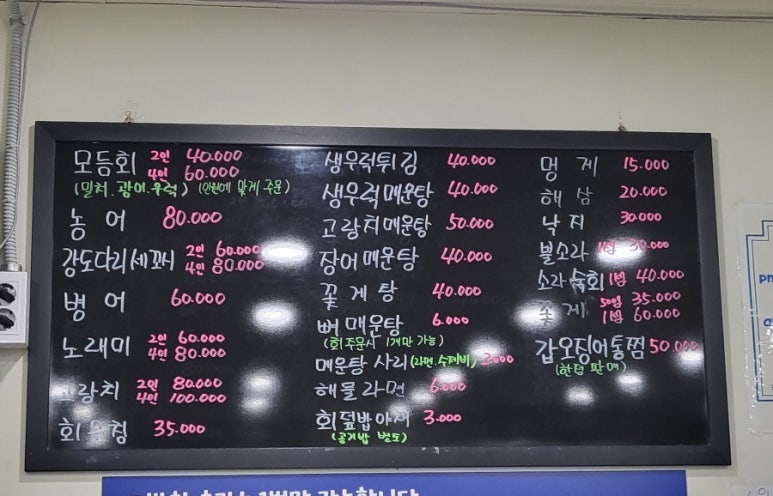 모듬회 2인 40.000
4인 60.000
(밀치.광어.우럭) (인원에 맞게 주문)
농어 80.000
강도다리세꼬시 2인 60.000
4인 80.000
병어 60.000
노래미 2인 60.000
4인 80.000
2인 80.000
4인 100.000
회 35.000
생우럭튀김 40.000
생우럭매운탕 40.000
고랑치매운탕 50.000
장어매운탕 40.000
꽃게탕 40.000
뼈매운탕 6.000
(회주문시 1개만 가능)
매운탕 사리 (라면.수제비)
해물라면 6.000
회덮밥야채 3.000
(공기밥 별도)
멍게 15.000
해삼 20.000
낙지 30.000
뿔소라 30.000
소라숙회 1접 40.000
꽃게 35.000
1접 60.000
갑오징어통찜 50.000
(한접 판매)